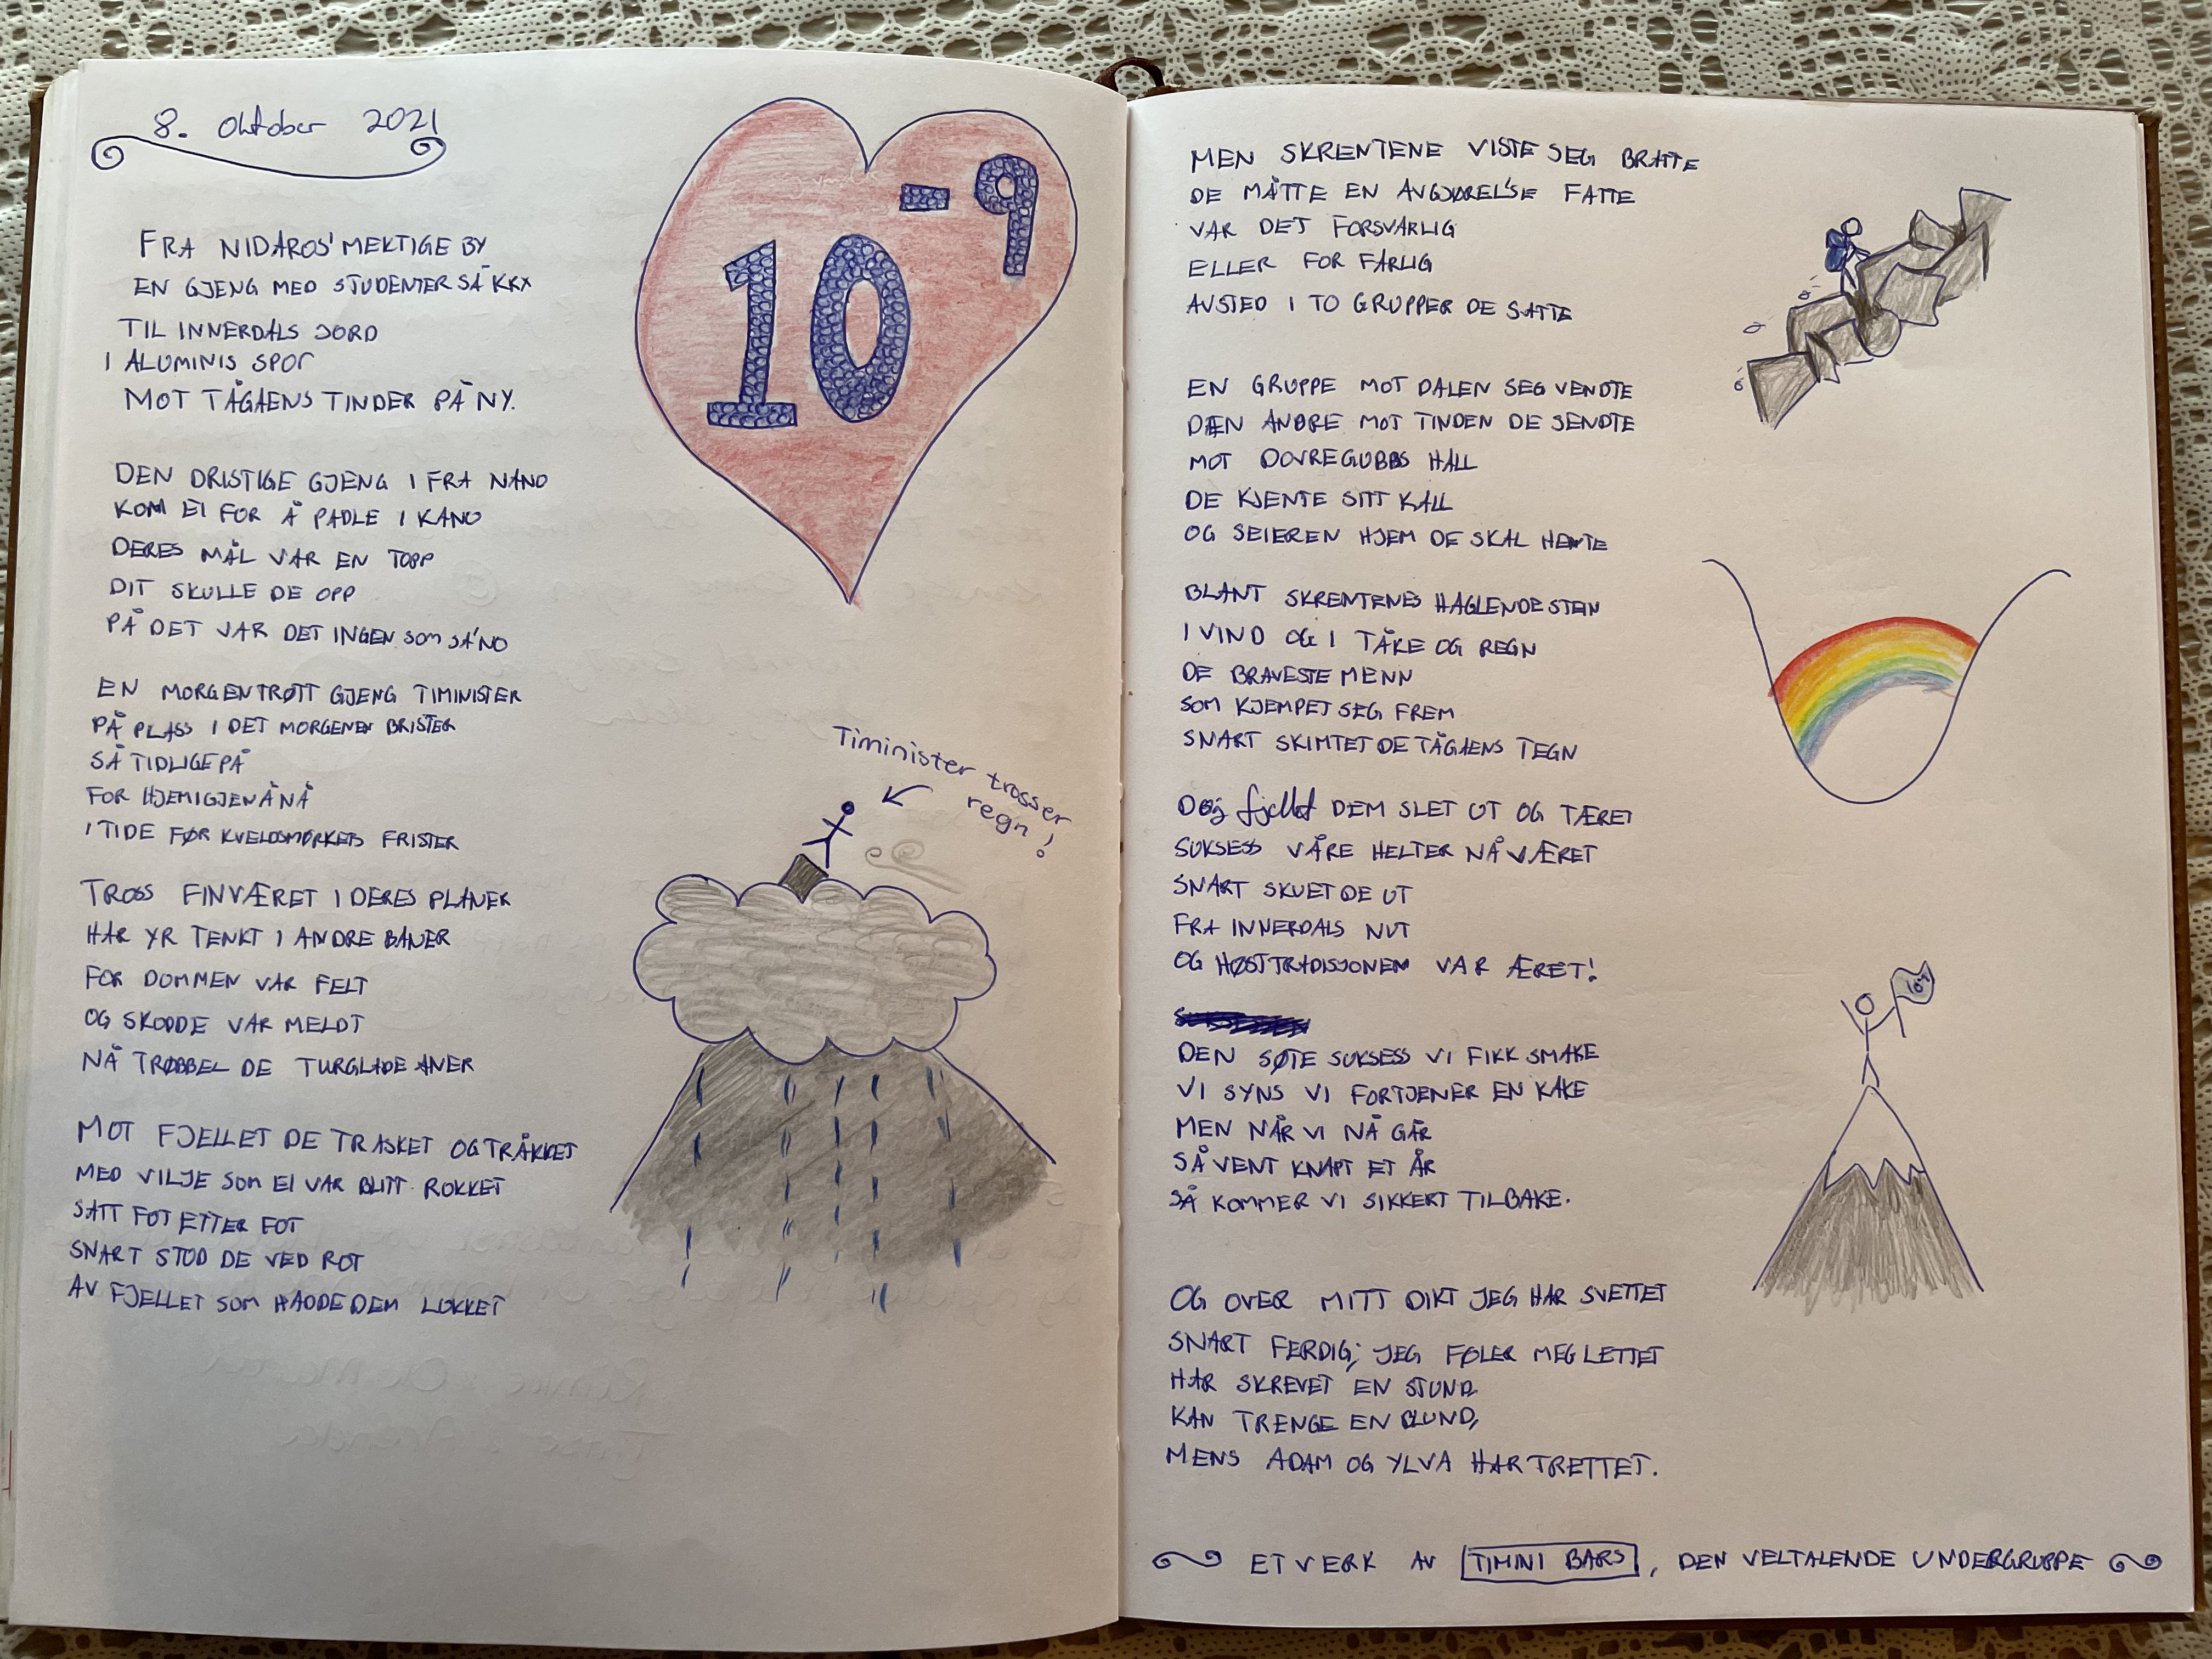 8. Oktober 2021
10⁻⁹
FRA NIDAROS' MEKTIGE BY
EN GJENG MED STUDENTER SÅ KRY
TIL INNERDALS JORD
I ALUMINIS SPOR
MOT TÅGAENS TINDER PÅ NY.
DEN DRISTIGE GJENG I FRA NANO
KOM EI FOR Å PADLE I KANO
DERES MÅL VAR EN TOPP
DIT SKULLE DE OPP
PÅ DET VAR DET INGEN SOM SA' NO
EN MORGENTRØTT GJENG TIMINISTER
PÅ PLASS I DET MORGENEN BRISTER
SÅ TIDLIGE PÅ
FOR HJEM IGJEN Å NÅ
I TIDE FØR KVELDSMØRKETS FRISTER
Timinister trosser
regn!
TROSS FINVÆRET I DERES PLANER
HAR YR TENKT I ANDRE BANER
FOR DOMMEN VAR FELT
OG SKODDE VAR MELDT
NÅ TRØBBEL DE TURGLADE ANER
MOT FJELLET DE TRASKET OG TRÅKKET
MED VILJE SOM EI VAR BLITT ROKKET
SATT FOT ETTER FOT
SNART STOD DE VED ROT
AV FJELLET SOM HADDE DEM LOKKET
MEN SKRENTENE VISTE SEG BRATTE
DE MÅTTE EN AVGJØRELSE FATTE
VAR DET FORSVARLIG
ELLER FOR FARLIG
AVSTED I TO GRUPPER DE SATTE
EN GRUPPE MOT DALEN SEG VENDTE
DEN ANDRE MOT TINDEN DE SENDTE
MOT DOVREGUBBS HALL
DE KJENTE SITT KALL
OG SEIEREN HJEM DE SKAL HENTE
BLANT SKRENTENES HAGLENDE STEIN
I VIND OG I TÅKE OG REGN
DE BRAVESTE MENN
SOM KJEMPET SEG FREM
SNART SKIMTET DE TÅGAENS TEGN
Dog fjellet DEM SLET UT OG TÆRET
SUKSESS VÅRE HELTER NÅ VÆRET
SNART SKUET DE UT
FRA INNERDALS NUT
OG HØSTTRADISJONEN VAR ÆRET!
DEN SØTE SUKSESS VI FIKK SMAKE
VI SYNS VI FORTJENER EN KAKE
MEN NÅR VI NÅ GÅR
SÅ VENT KNAPT ET ÅR
SÅ KOMMER VI SIKKERT TILBAKE.
10⁻⁹
OG OVER MITT DIKT JEG HAR SVETTET
SNART FERDIG; JEG FØLER MEG LETTET
HAR SKREVET EN STUND
KAN TRENGE EN BLUND,
MENS ADAM OG YLVA HAR TRETTET.
ET VERK AV TIMINI BARS, DEN VELTALENDE UNDERGRUPPE